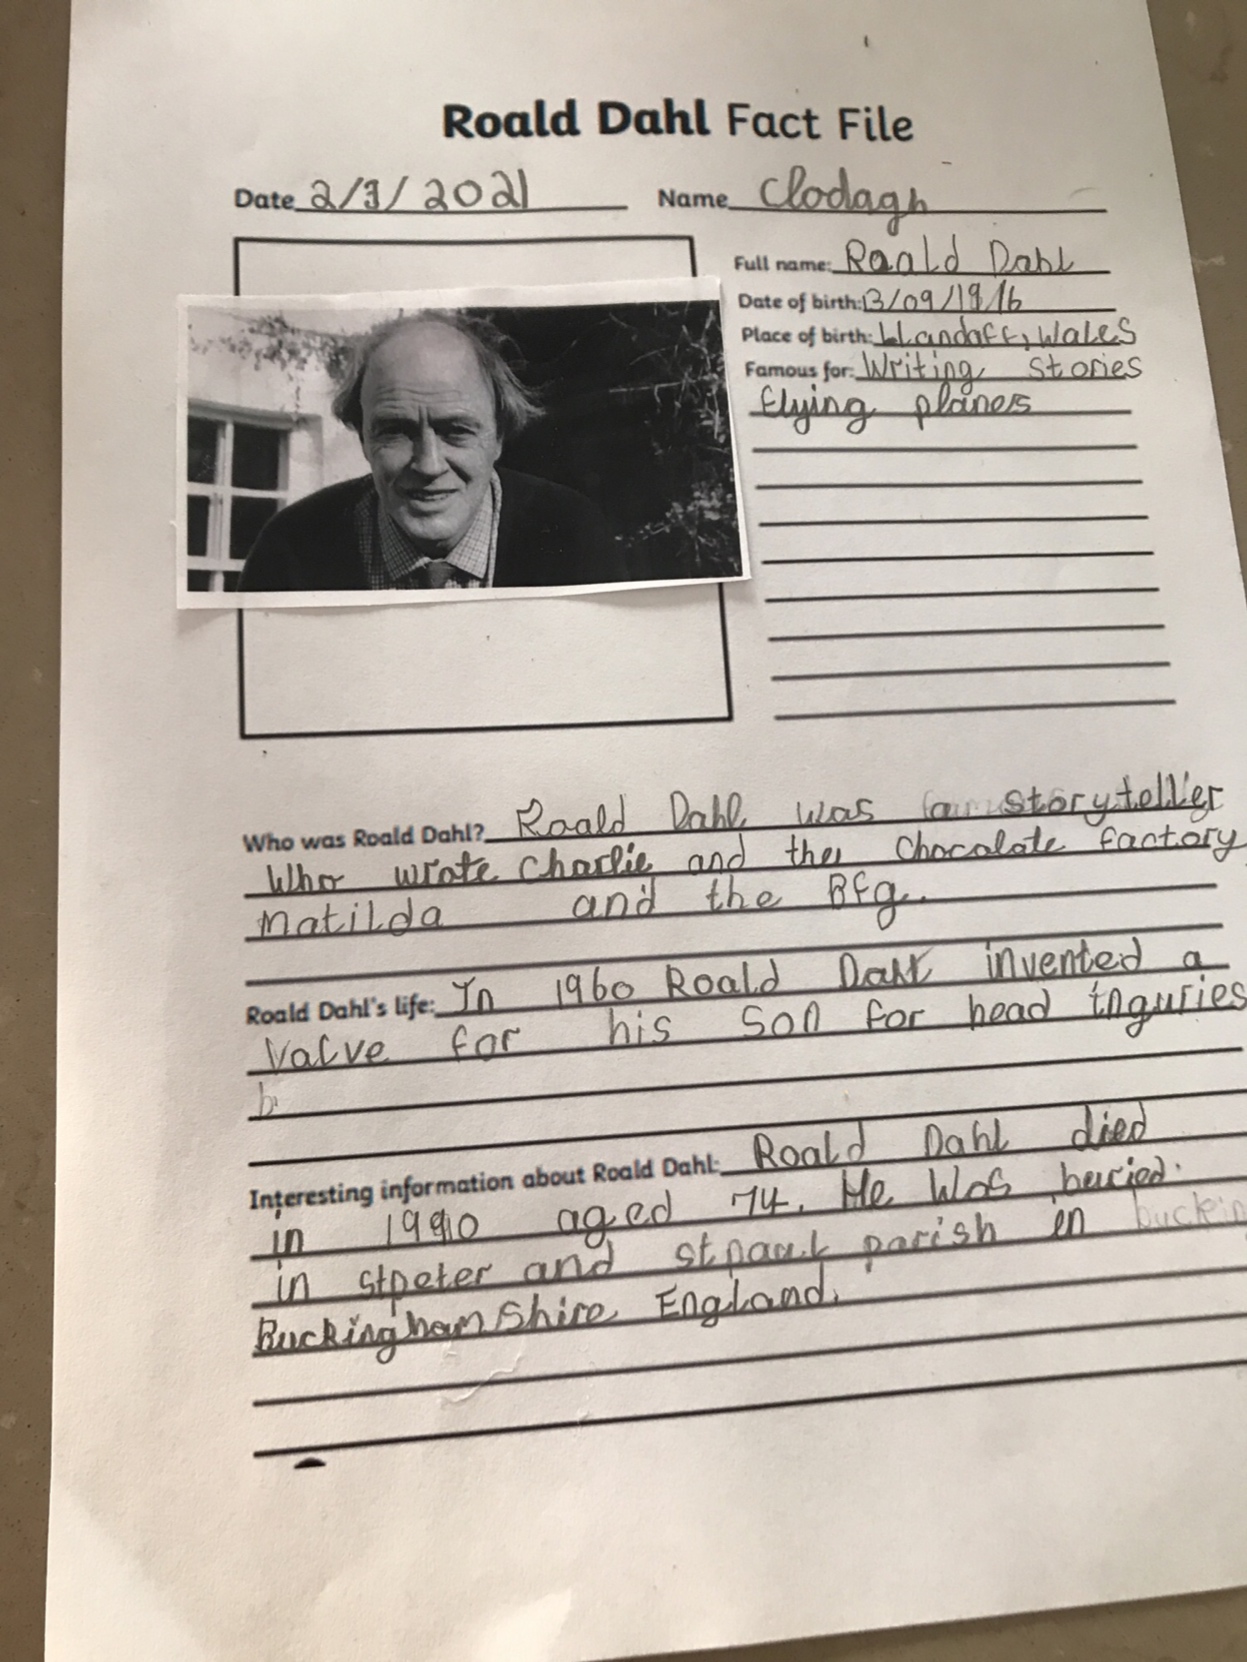 Roald Dahl Fact File
Date 2/3/2021 Name Clodagh
Full name: Roald Dahl
Date of birth: 13/09/1916
Place of birth: Llandaff, Wales
Famous for: Writing stories
flying planes
Who was Roald Dahl? Roald Dahl was a storyteller
Who wrote Charlie and the Chocolate factory
Matilda and the Bfg.
Roald Dahl's life: In 1960 Roald Dahl invented a
Valve for his Son for head inguries
Interesting information about Roald Dahl: Roald Dahl died
in 1990 aged 74. He Was buried.
in stpeter and st paul parish in buckin
Buckinghamshire England.